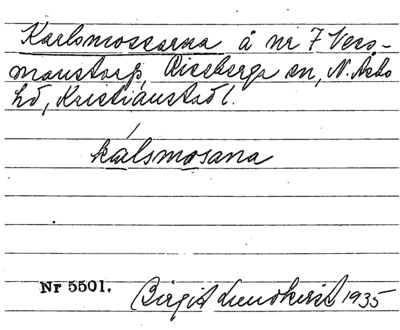 Karlsmossarna å nr 7 Vers-
manstorp, Riseberga sn, N. Åsbo
hd, Kristianstads l.
kálsmosana
Nr 5501. Birgit Lundkvist 1935